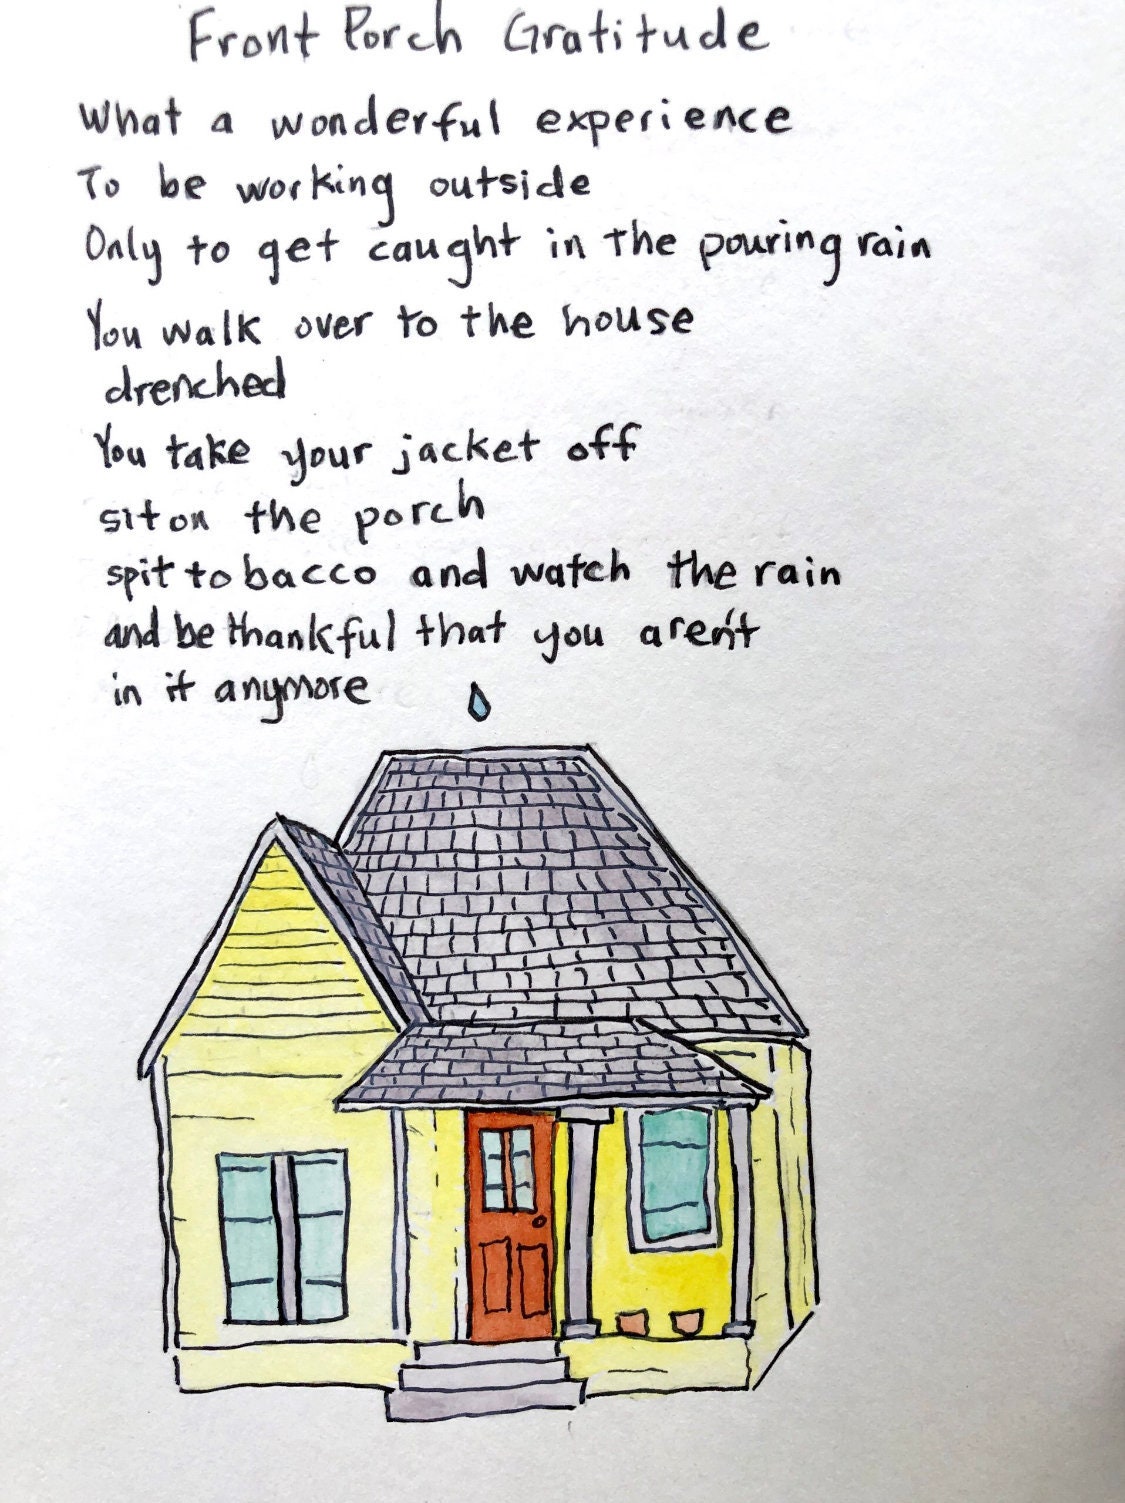 Front Porch Gratitude
What a wonderful experience
To be working outside
Only to get caught in the pouring rain
You walk over to the house
drenched
You take your jacket off
sit on the porch
spit tobacco and watch the rain
and be thankful that you aren't
in it anymore